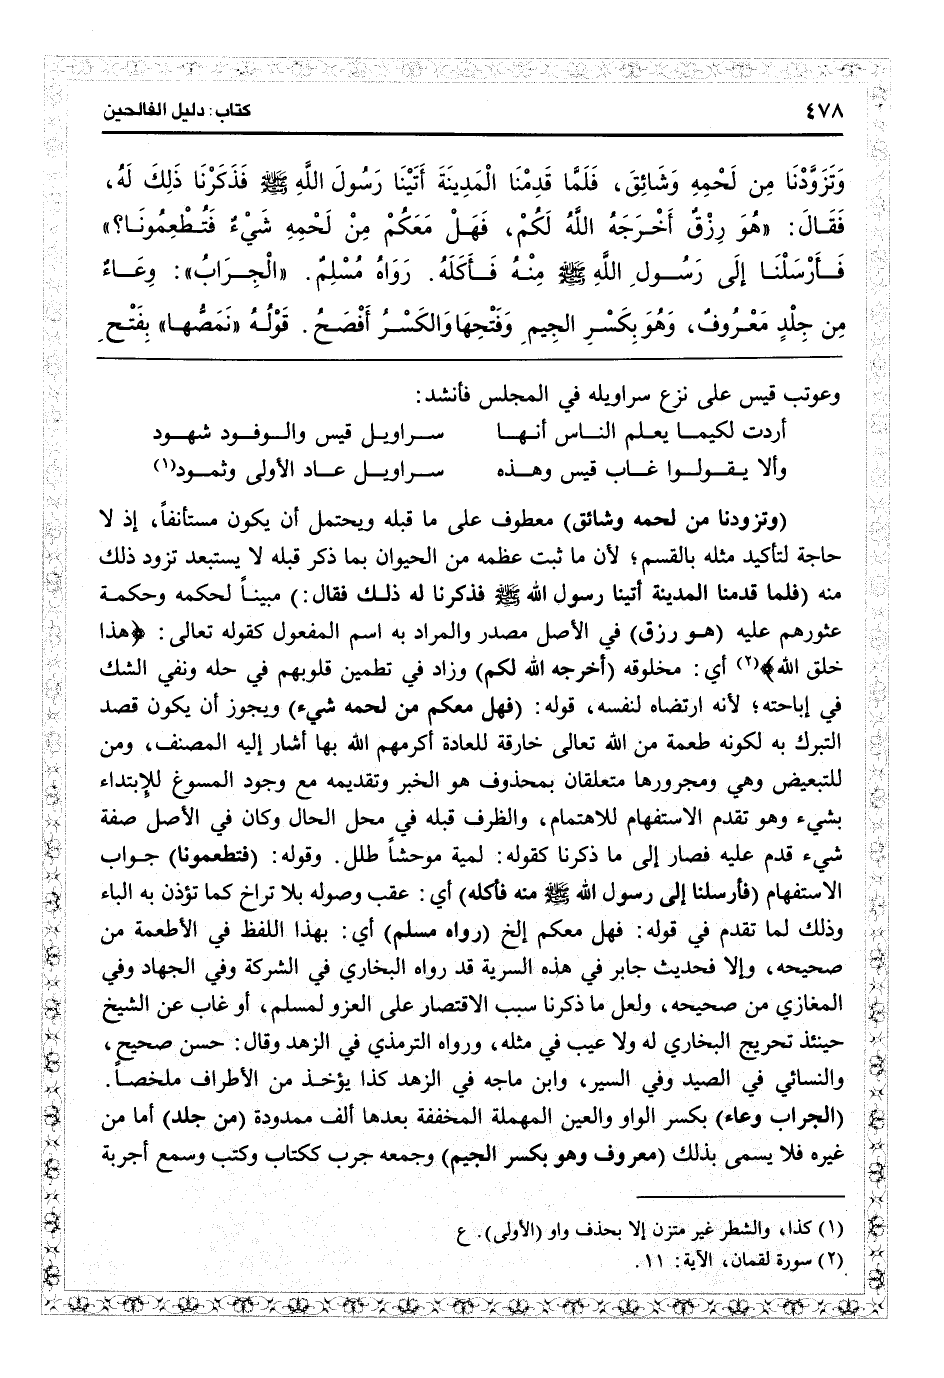 ٤٧٨
كتاب: دليل الفالحين
وَتَزَوَّدْنَا مِن لَحْمِهِ وَشَائِقَ، فَلَمَّا قَدِمْنَا الْمَدِينَةَ أَتَيْنَا رَسُولَ اللَّهِ ﷺ فَذَكَرْنَا ذَلِكَ لَهُ،
فَقَالَ: «هُوَ رِزْقٌ أَخْرَجَهُ اللَّهُ لَكُمْ، فَهَلْ مَعَكُمْ مِنْ لَحْمِهِ شَيْءٌ فَتُطْعِمُونَا؟»
فَأَرْسَلْنَا إِلَى رَسُولِ اللَّهِ ﷺ مِنْهُ فَأَكَلَهُ. رَوَاهُ مُسْلِمٌ. «الْجِرَابُ»: وِعَاءٌ
مِن جِلْدٍ مَعْرُوفٌ، وَهُوَ بِكَسْرِ الجِيمِ وَفَتْحِهَا وَالكَسْرُ أَفْصَحُ. قَوْلُهُ «نَمَصُّها» بِفَتْحِ
وعوتب قيس على نزع سراويله في المجلس فأنشد:
أردت لكيما يعلم الناس أنها سراويل قيس والوفود شهود
وألا يقولوا غاب قيس وهذه سراويل عاد الأولى وثمود(١)
(وتزودنا من لحمه وشائق) معطوف على ما قبله ويحتمل أن يكون مستأنفاً، إذ لا
حاجة لتأكيد مثله بالقسم؛ لأن ما ثبت عظمه من الحيوان بما ذكر قبله لا يستبعد تزود ذلك
منه (فلما قدمنا المدينة أتينا رسول الله ﷺ فذكرنا له ذلك فقال:) مبيناً لحكمه وحكمة
عثورهم عليه (هو رزق) في الأصل مصدر والمراد به اسم المفعول كقوله تعالى: ﴿هذا
خلق الله﴾(٢) أي: مخلوقه (أخرجه الله لكم) وزاد في تطمين قلوبهم في حله ونفي الشك
في إباحته؛ لأنه ارتضاه لنفسه، قوله: (فهل معكم من لحمه شيء) ويجوز أن يكون قصد
التبرك به لكونه طعمة من الله تعالى خارقة للعادة أكرمهم الله بها أشار إليه المصنف، ومن
للتبعيض وهي ومجرورها متعلقان بمحذوف هو الخبر وتقديمه مع وجود المسوغ للإبتداء
بشيء وهو تقدم الاستفهام للاهتمام، والظرف قبله في محل الحال وكان في الأصل صفة
شيء قدم عليه فصار إلى ما ذكرنا كقوله: لمية موحشاً طلل. وقوله: (فتطعمونا) جواب
الاستفهام (فأرسلنا إلى رسول الله ﷺ منه فأكله) أي: عقب وصوله بلا تراخ كما تؤذن به الباء
وذلك لما تقدم في قوله: فهل معكم إلخ (رواه مسلم) أي: بهذا اللفظ في الأطعمة من
صحيحه، وإلا فحديث جابر في هذه السرية قد رواه البخاري في الشركة وفي الجهاد وفي
المغازي من صحيحه، ولعل ما ذكرنا سبب الاقتصار على العزو لمسلم، أو غاب عن الشيخ
حينئذ تخريج البخاري له ولا عيب في مثله، ورواه الترمذي في الزهد وقال: حسن صحيح،
والنسائي في الصيد وفي السير، وابن ماجه في الزهد كذا يؤخذ من الأطراف ملخصاً.
(الجراب وعاء) بكسر الواو والعين المهملة المخففة بعدها ألف ممدودة (من جلد) أما من
غيره فلا يسمى بذلك (معروف وهو بكسر الجيم) وجمعه جرب ككتاب وكتب وسمع أجربة
(١) كذا، والشطر غير متزن إلا بحذف واو (الأولى). ع
(٢) سورة لقمان، الآية: ١١.